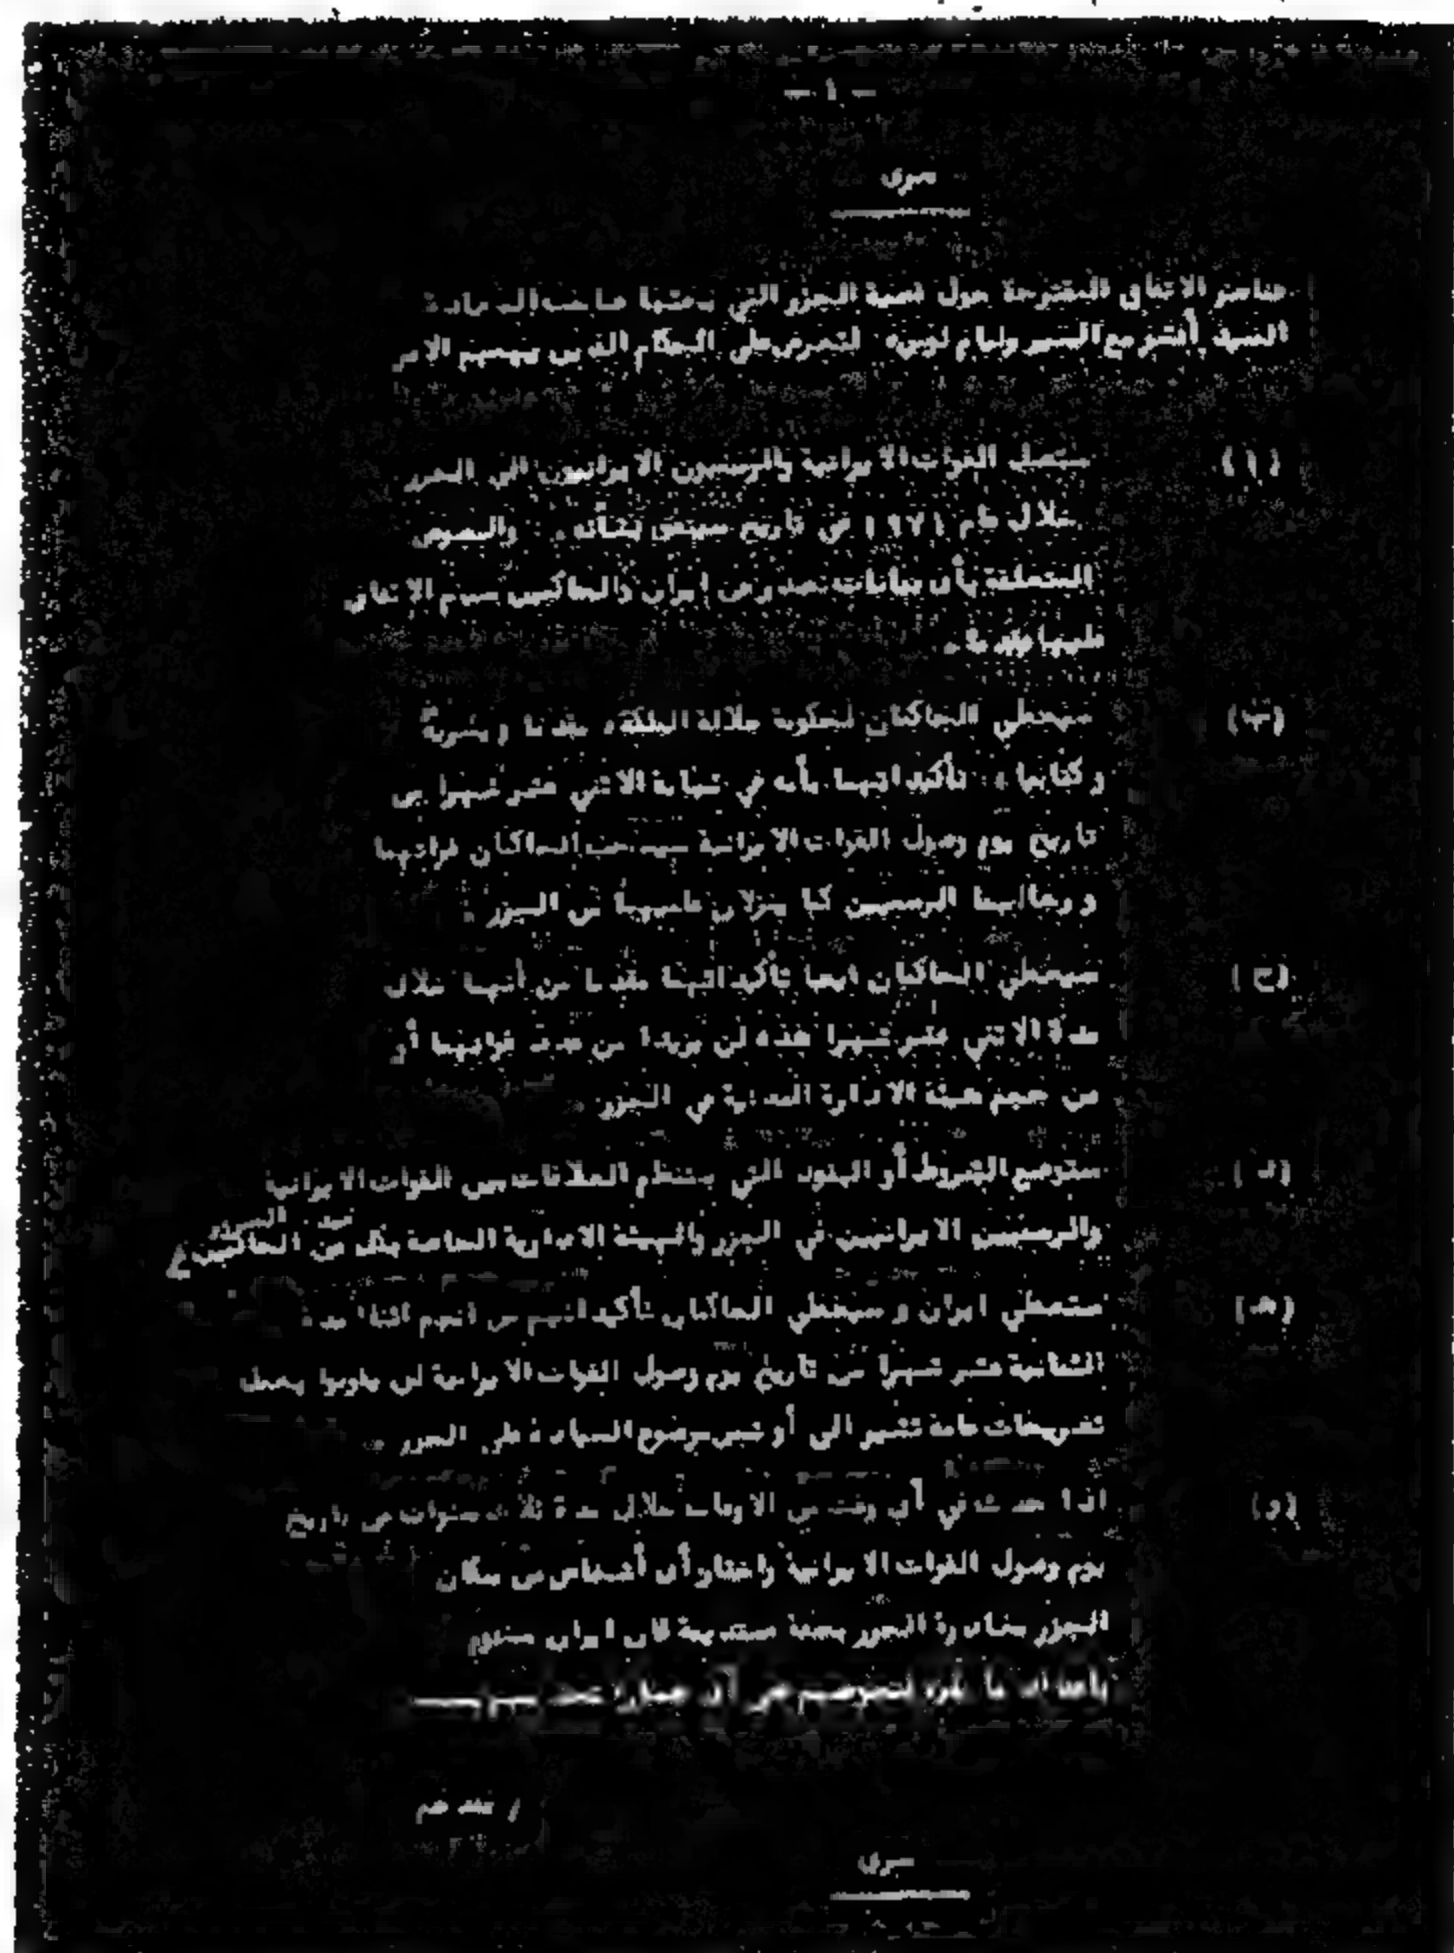 - ١ -
سرى
عناصر الاتفاق المقترحة حول قضية الجزر التي بحثها صاحب السعادة
السيد أفشر مع السير وليام لويس لتعرض على الحكام الذين يهمهم الامر
(١) ستصل القوات الايرانية والرسميون الايرانيون الى الجزر
خلال عام ١٩٧١ في تاريخ سيتفق بشأنه . والنصوص
المتعلقة بأن بيانات تصدر من إيران والحاكمين سيتم الاتفاق
عليها
(ب) سيعطي الحاكمان لحكومة جلالة الملكة ، مقدما و بسرية
وكتابة ، تأكيداتهما بأنه في نهاية الاثني عشر شهرا من
تاريخ يوم وصول القوات الايرانية سيسحب الحاكمان قواتهما
و رجالهما الرسميين كما ينزلان علميهما في الجزر
(ج) سيعطي الحاكمان ايضا تأكيداتهما مقدما من أنهما خلال
مدة الاثني عشر شهرا هذه لن يزيدا من عدد قواتهما أو
من حجم هيئة الادارة المدنية في الجزر
(د) ستوضع الشروط أو البنود التي ستنظم العلاقات بين القوات الايرانية
والرسميين الايرانيين في الجزر والهيئة الادارية الخاصة بكل من الحاكمين
(هـ) ستعطي ايران و سيعطي الحاكمان تأكيداتهم من انهم
الثمانية عشر شهرا من تاريخ يوم وصول القوات الايرانية لن يقوموا بعمل
تصريحات عامة تشير الى أو تمس موضوع السيادة على الجزر
(و) اذا حدث في أي وقت من الاوقات خلال مدة ثلاث سنوات من تاريخ
يوم وصول القوات الايرانية واختار أي أشخاص من سكان
الجزر مغادرة الجزر بصفة مستديمة فان ايران ستقوم
لتعويضهم عن أي
/ تقديم
سرى